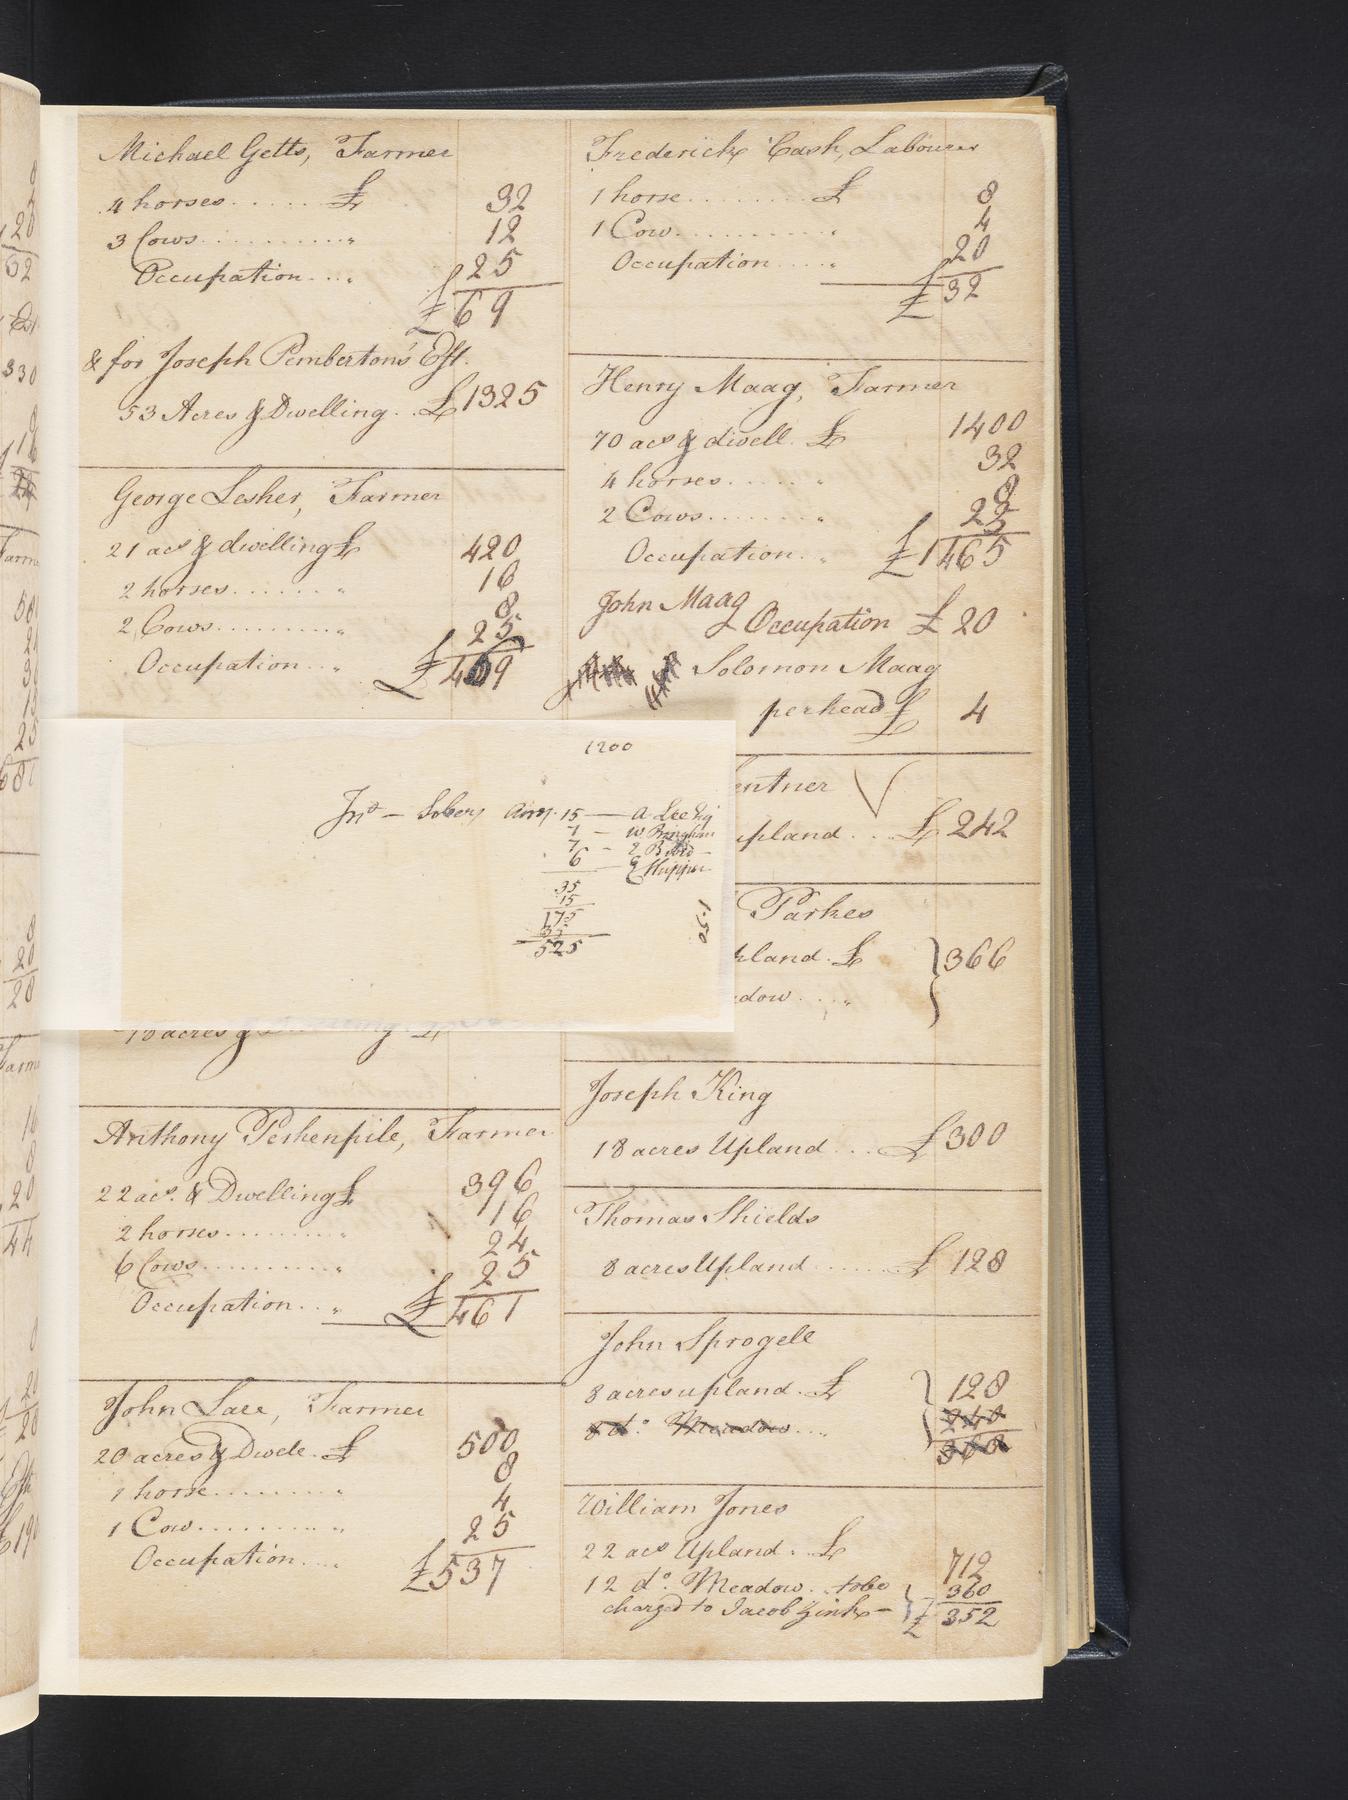 Michael Getts, Farmer
4 horses ...... £ 32
3 Cows ........... " 12
Occupation .... " 25
£ 69
& for Joseph Pemberton's Est.
53 Acres & Dwelling .. £ 1325
George Lesher, Farmer
21 acs & dwelling £ 420
2 horses ....... " 16
2 Cows ......... " 8
Occupation ... " 25
£ 469
18 acres &
Anthony Peshenpile, Farmer
22 acs. & Dwelling £ 396
2 horses ......... " 16
6 Cows .......... " 24
Occupation ... " 25
£ 461
John Lare, Farmer
20 acres & Dwell. £ 500
1 horse ........ " 8
1 Cow ......... " 4
Occupation .... " 25
£ 537
1200
15 — A Lee Esq
1 — W Bingham
7 —
6
35
15
175
35
525
1.50
Frederick Cash, Labourer
1 horse ......... £ 8
1 Cow .......... " 4
Occupation .... " 20
£ 32
Henry Maag, Farmer
70 acs & dwell. £ 1400
4 horses ...... " 32
2 Cows ....... " 8
Occupation .. " 25
£ 1465
John Maag
Occupation £ 20
Solomon Maag
per head £ 4
entner
upland ... £ 242
Parkes
upland . £ 366
adow ... "
Joseph King
18 acres Upland ... £ 300
Thomas Shields
8 acres Upland ...... £ 128
John Sprogell
8 acres upland . £ 128
8 do. Meadow .... "
William Jones
22 acs Upland . £
12 do. Meadow .. to be 712
charged to Jacob Zink — 360
£ 352